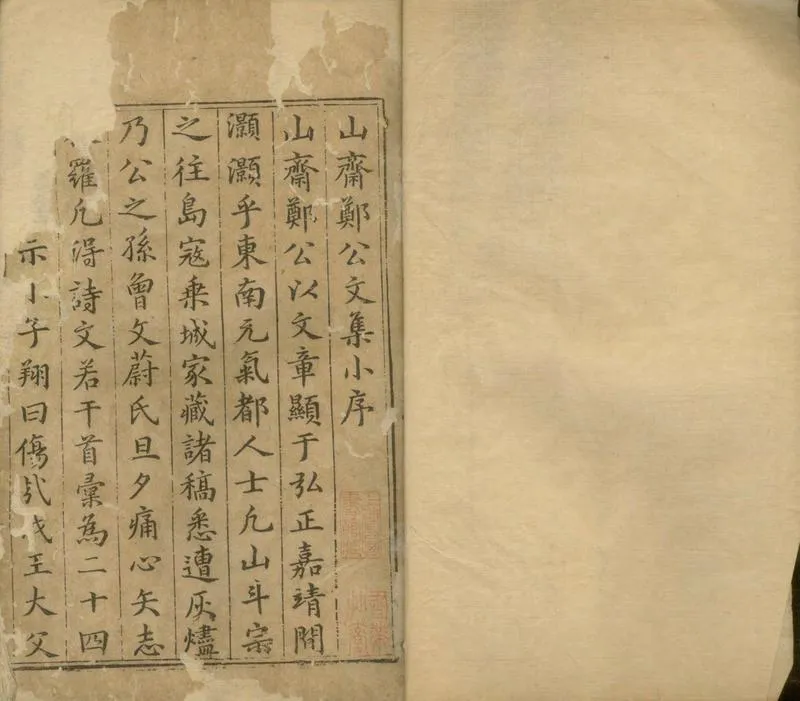 山齋鄭公文集小序
山齋鄭公以文章顯于弘正嘉靖間
灝灝乎東南元氣都人士凡山斗宗
之往島寇乗城家藏諸稿悉遭灰燼
乃公之孫曾文蔚氏旦夕痛心矢志
羅凡淂詩文若干首彙為二十四
示小子翔曰傷哉我王大父